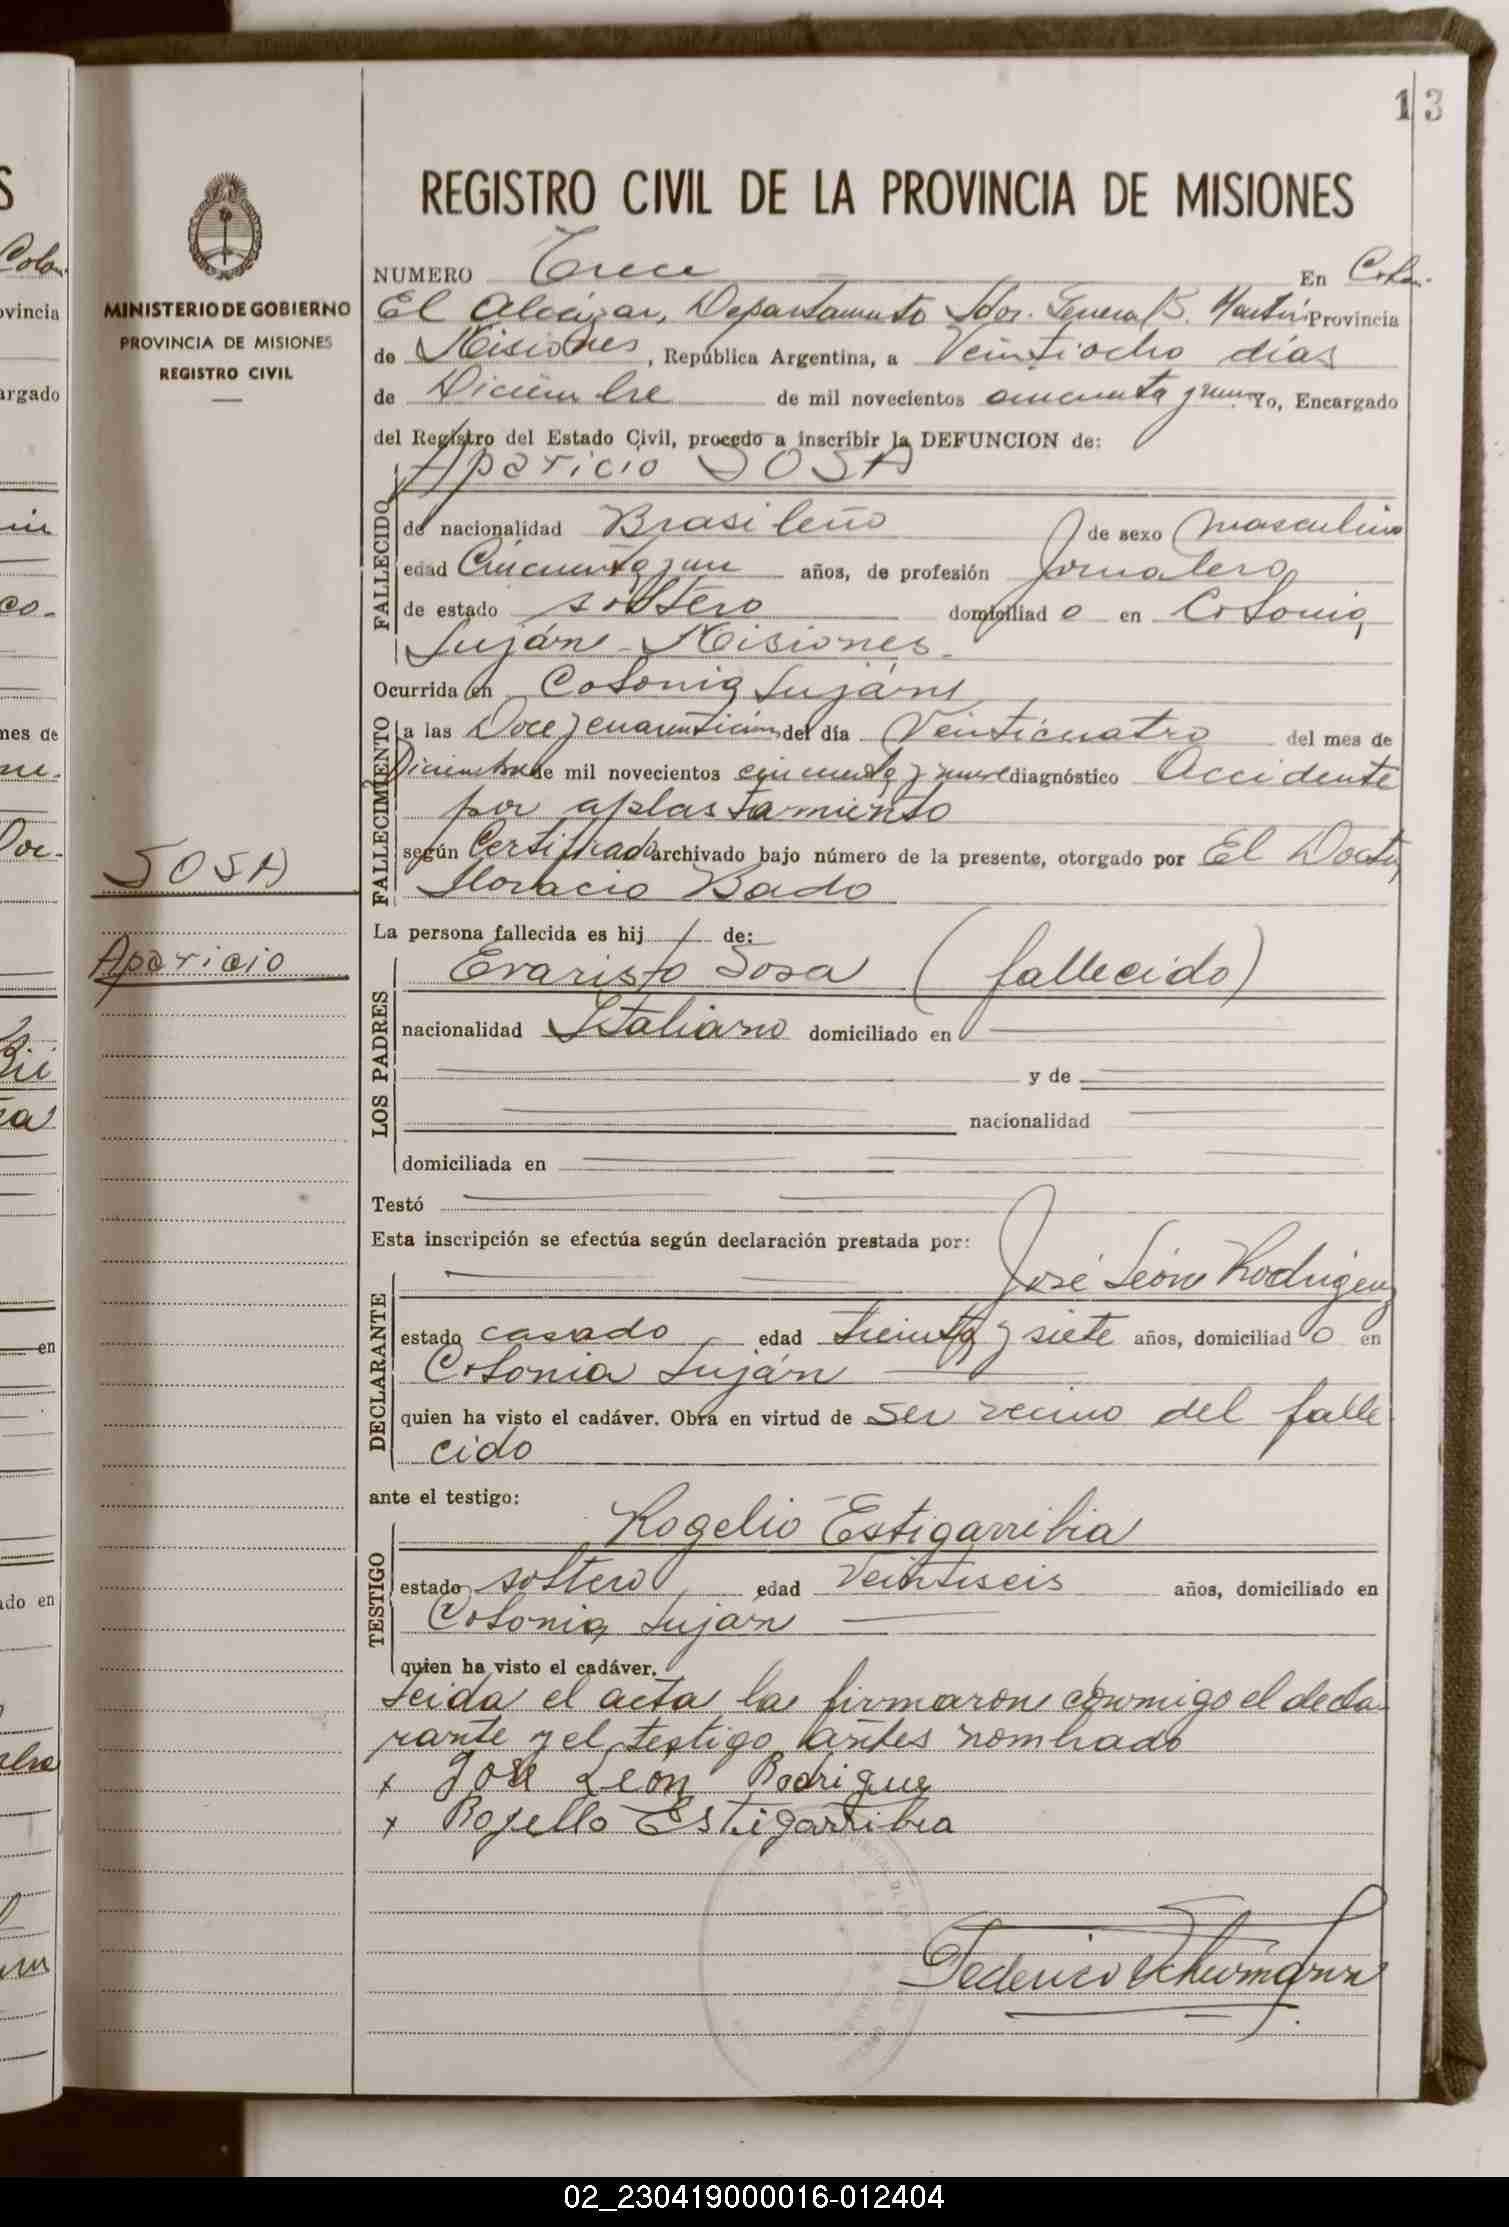 13
REGISTRO CIVIL DE LA PROVINCIA DE MISIONES
MINISTERIO DE GOBIERNO
PROVINCIA DE MISIONES
REGISTRO CIVIL
SOSA
Aparicio
NUMERO Trece En Colon.
El Alcázar, Departamento Ldor. General S. Martín Provincia
de Misiones, República Argentina, a Veintiocho días
de Diciembre de mil novecientos cincuenta y nueve Yo, Encargado
del Registro del Estado Civil, procedo a inscribir la DEFUNCION de:
Aparicio SOSA
FALLECIDO
de nacionalidad Brasileño de sexo masculino
edad Cincuenta y un años, de profesión Jornalero
de estado soltero domiciliad o en Colonia
Luján - Misiones.
Ocurrida en Colonia Luján
FALLECIMIENTO
a las Doce y cuarenticinco del día Veinticuatro del mes de
Diciembre de mil novecientos cincuenta y nueve diagnóstico Accidente
por aplastamiento
según Certificado archivado bajo número de la presente, otorgado por El Doctor
Horacio Bado
La persona fallecida es hij / de:
LOS PADRES
Evaristo Sosa (fallecido)
nacionalidad Italiano domiciliado en
y de
nacionalidad
domiciliada en
Testó
Esta inscripción se efectúa según declaración prestada por:
DECLARANTE
José León Rodriguez
estado casado, edad treinta y siete años, domiciliad o en
Colonia Luján
quien ha visto el cadáver. Obra en virtud de ser vecino del falle
cido
ante el testigo:
TESTIGO
Rogelio Estigarribia
estado soltero, edad Veintiseis años, domiciliado en
Colonia Luján
quien ha visto el cadáver.
Leida el acta la firmaron conmigo el decla-
rante y el testigo antes nombrado
x José León Rodrigue
x Rojello Estigarribia
02_230419000016-012404